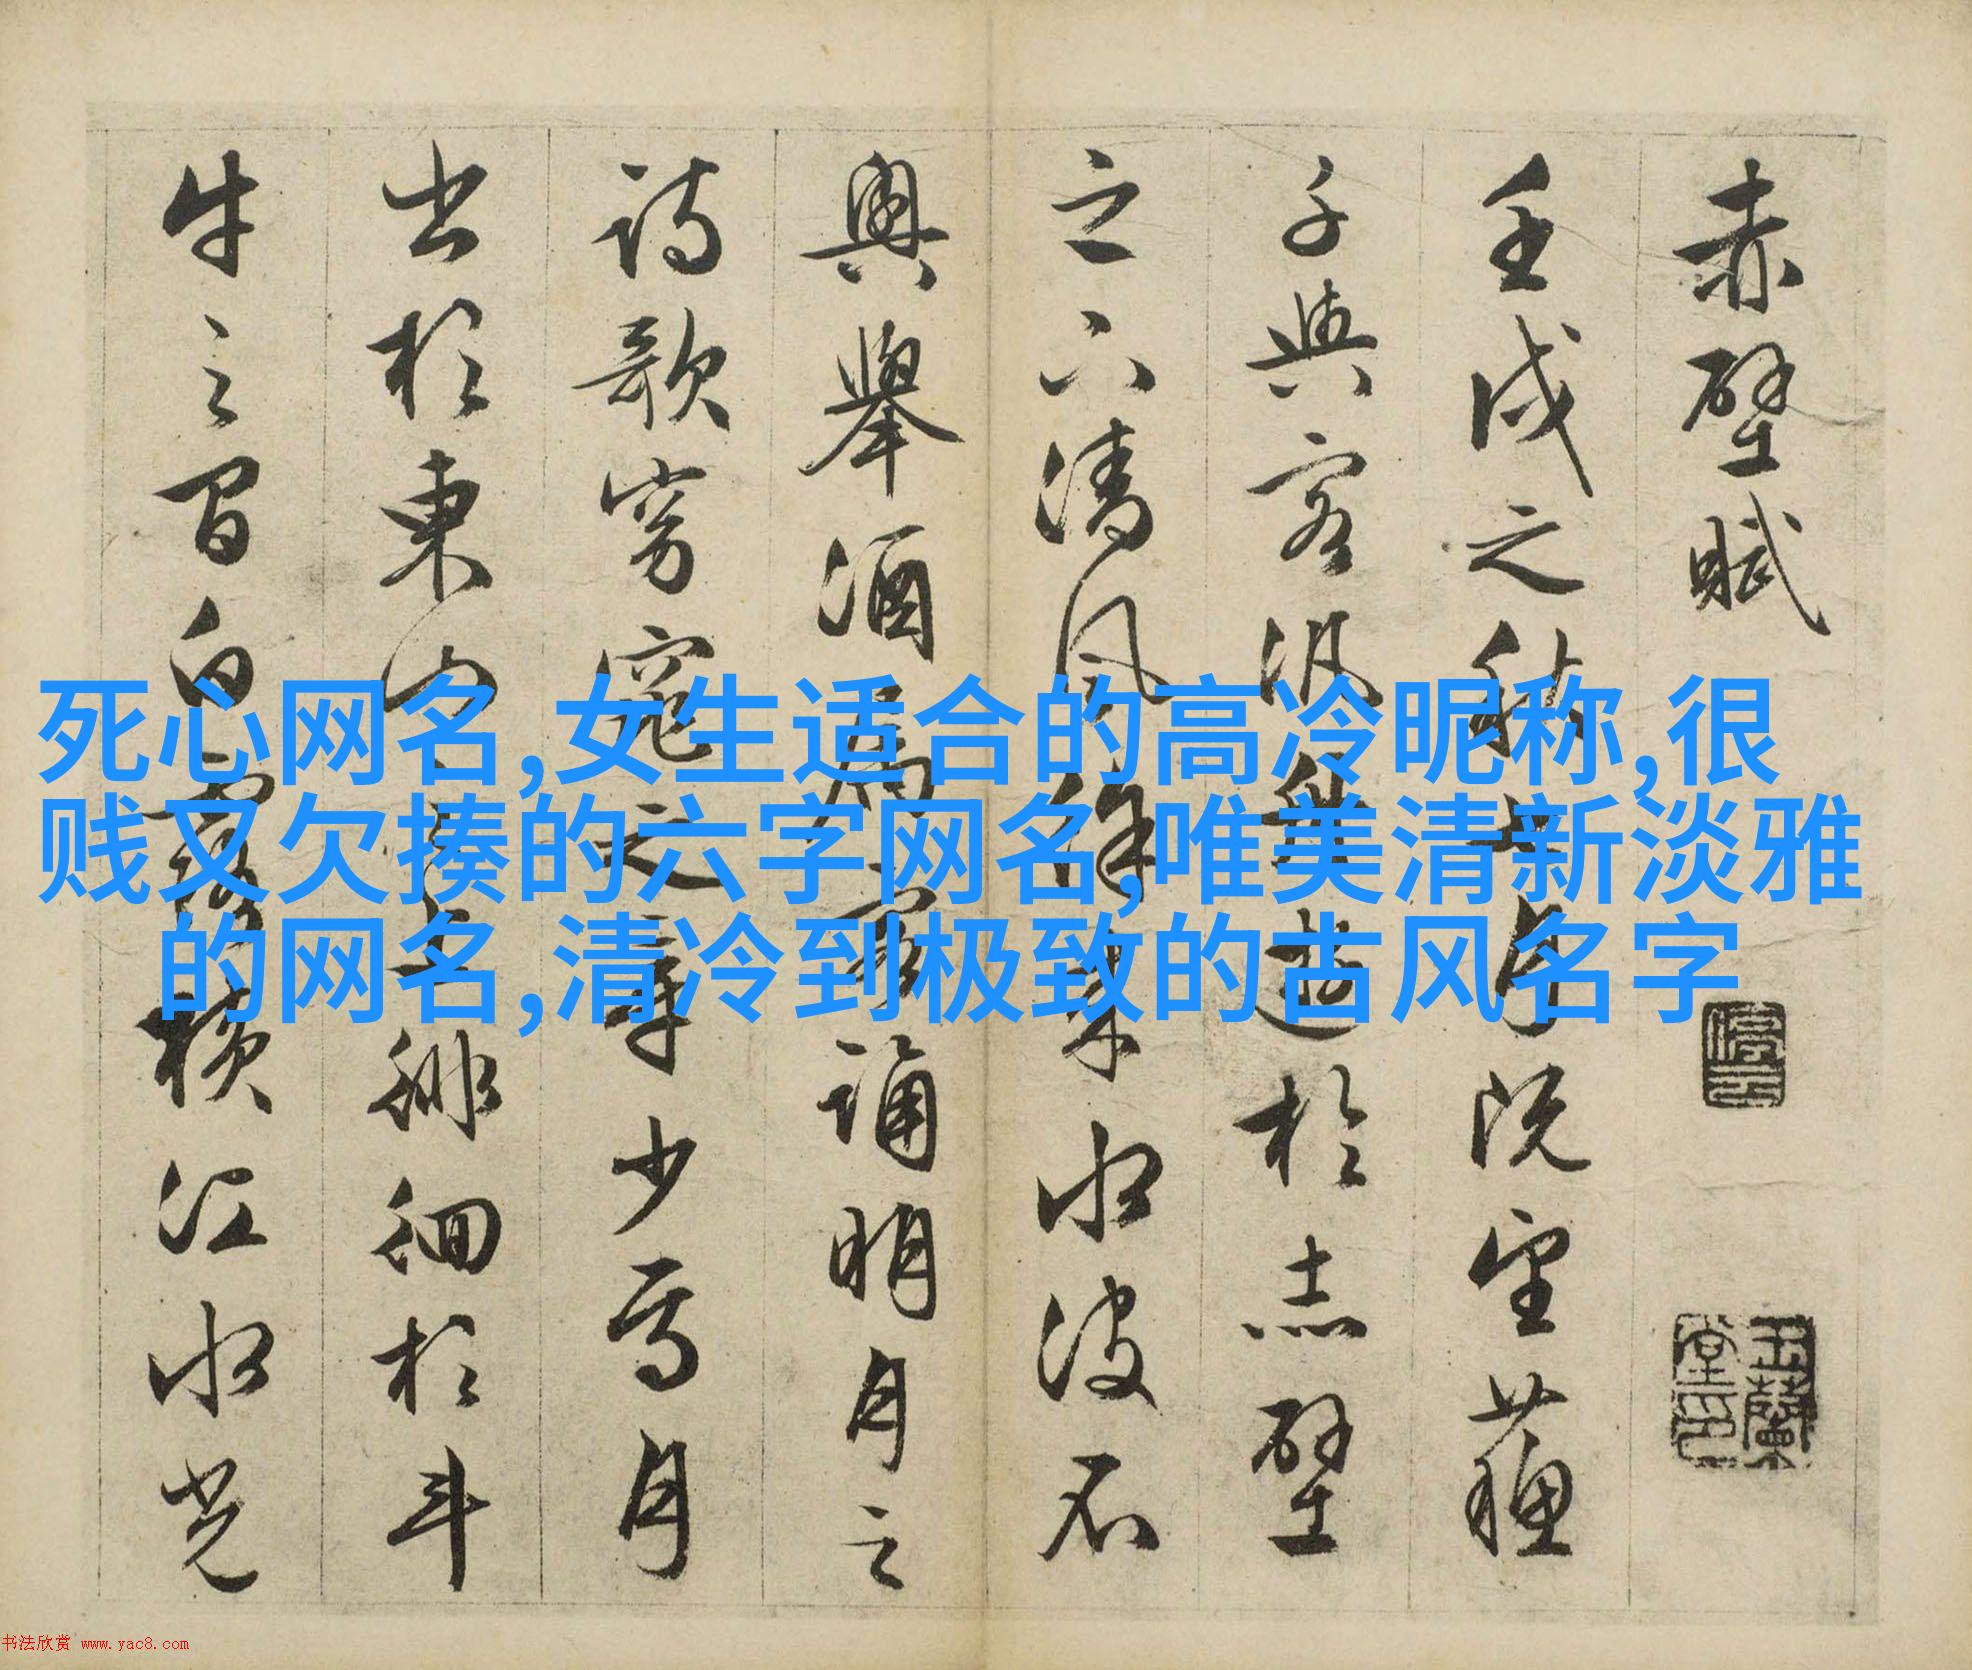 赤壁賦
壬戌之秋七月既望蘓
子與客汎舟遊於赤壁
之下清風徐來水波不
興舉酒屬客誦明月之
詩歌窈窕之章少焉月
出於東山之上徘徊於斗
牛之間白露橫江水光
死心网名,女生适合的高冷昵称,很
贱又欠揍的六字网名,唯美清新淡雅
的网名,清冷到极致的古风名字
停雲
玉蘭堂印
书法欣赏 www.yac8.com